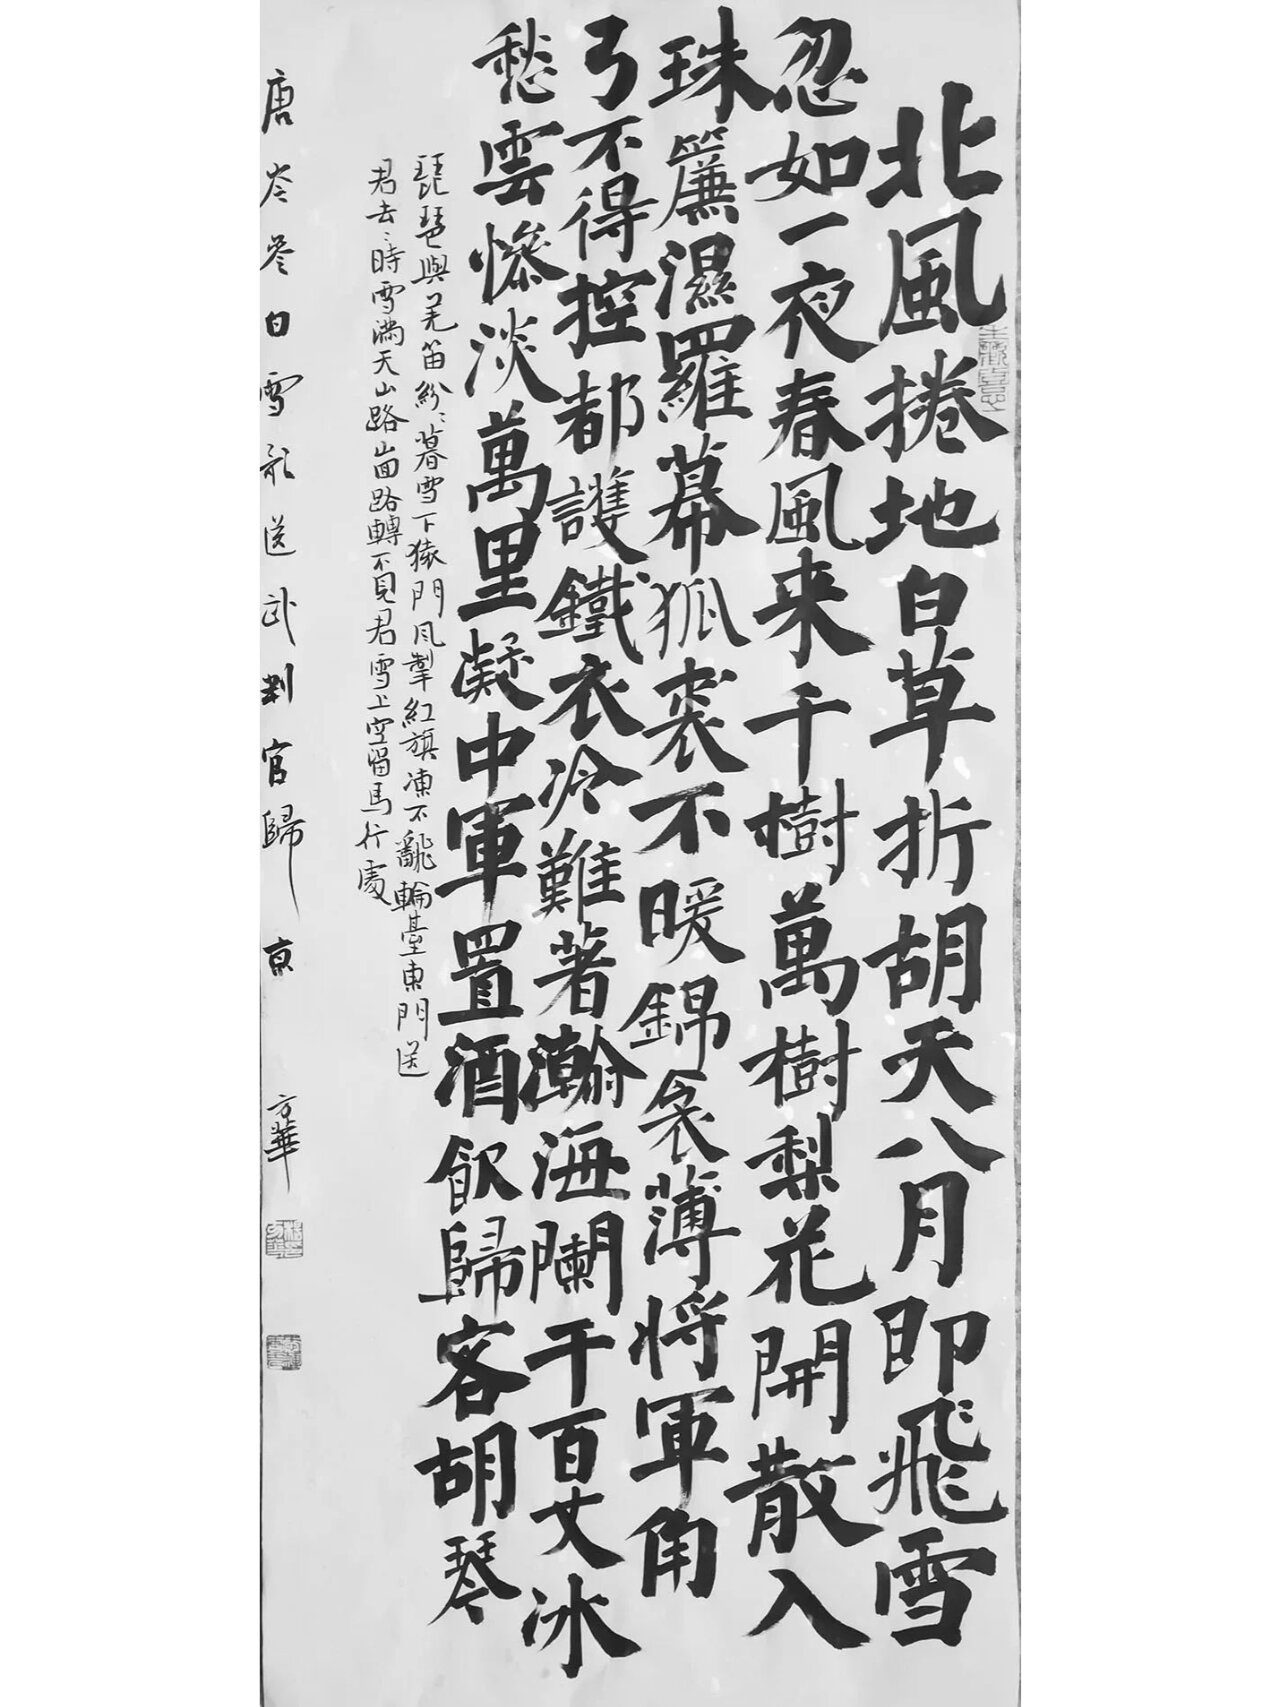 北風捲地白草折胡天八月即飛雪
忽如一夜春風来千樹萬樹梨花開散入
珠簾濕羅幕狐裘不暖錦衾薄将軍角
弓不得控都護鐵衣冷難著瀚海闌干百丈冰
愁雲慘淡萬里凝中軍置酒飲歸客胡琴
琵琶與羌笛紛〻暮雪下猿門風掣紅旗凍不飜輪臺東門送
君去〻時雪滿天山路山面路轉不見君雪上空留馬行處
唐岑參白雪歌送武判官歸京 方華